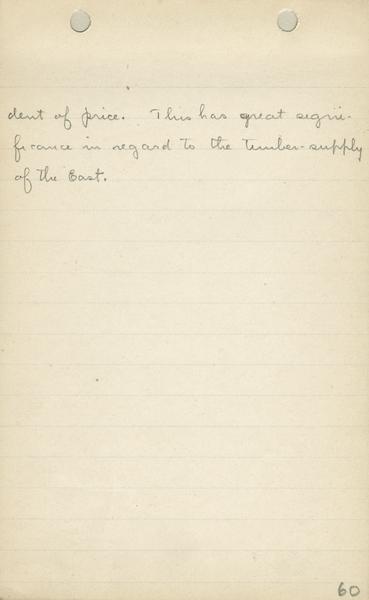 dent of price. This has great signi-
ficance in regard to the timber-supply
of the East.
60